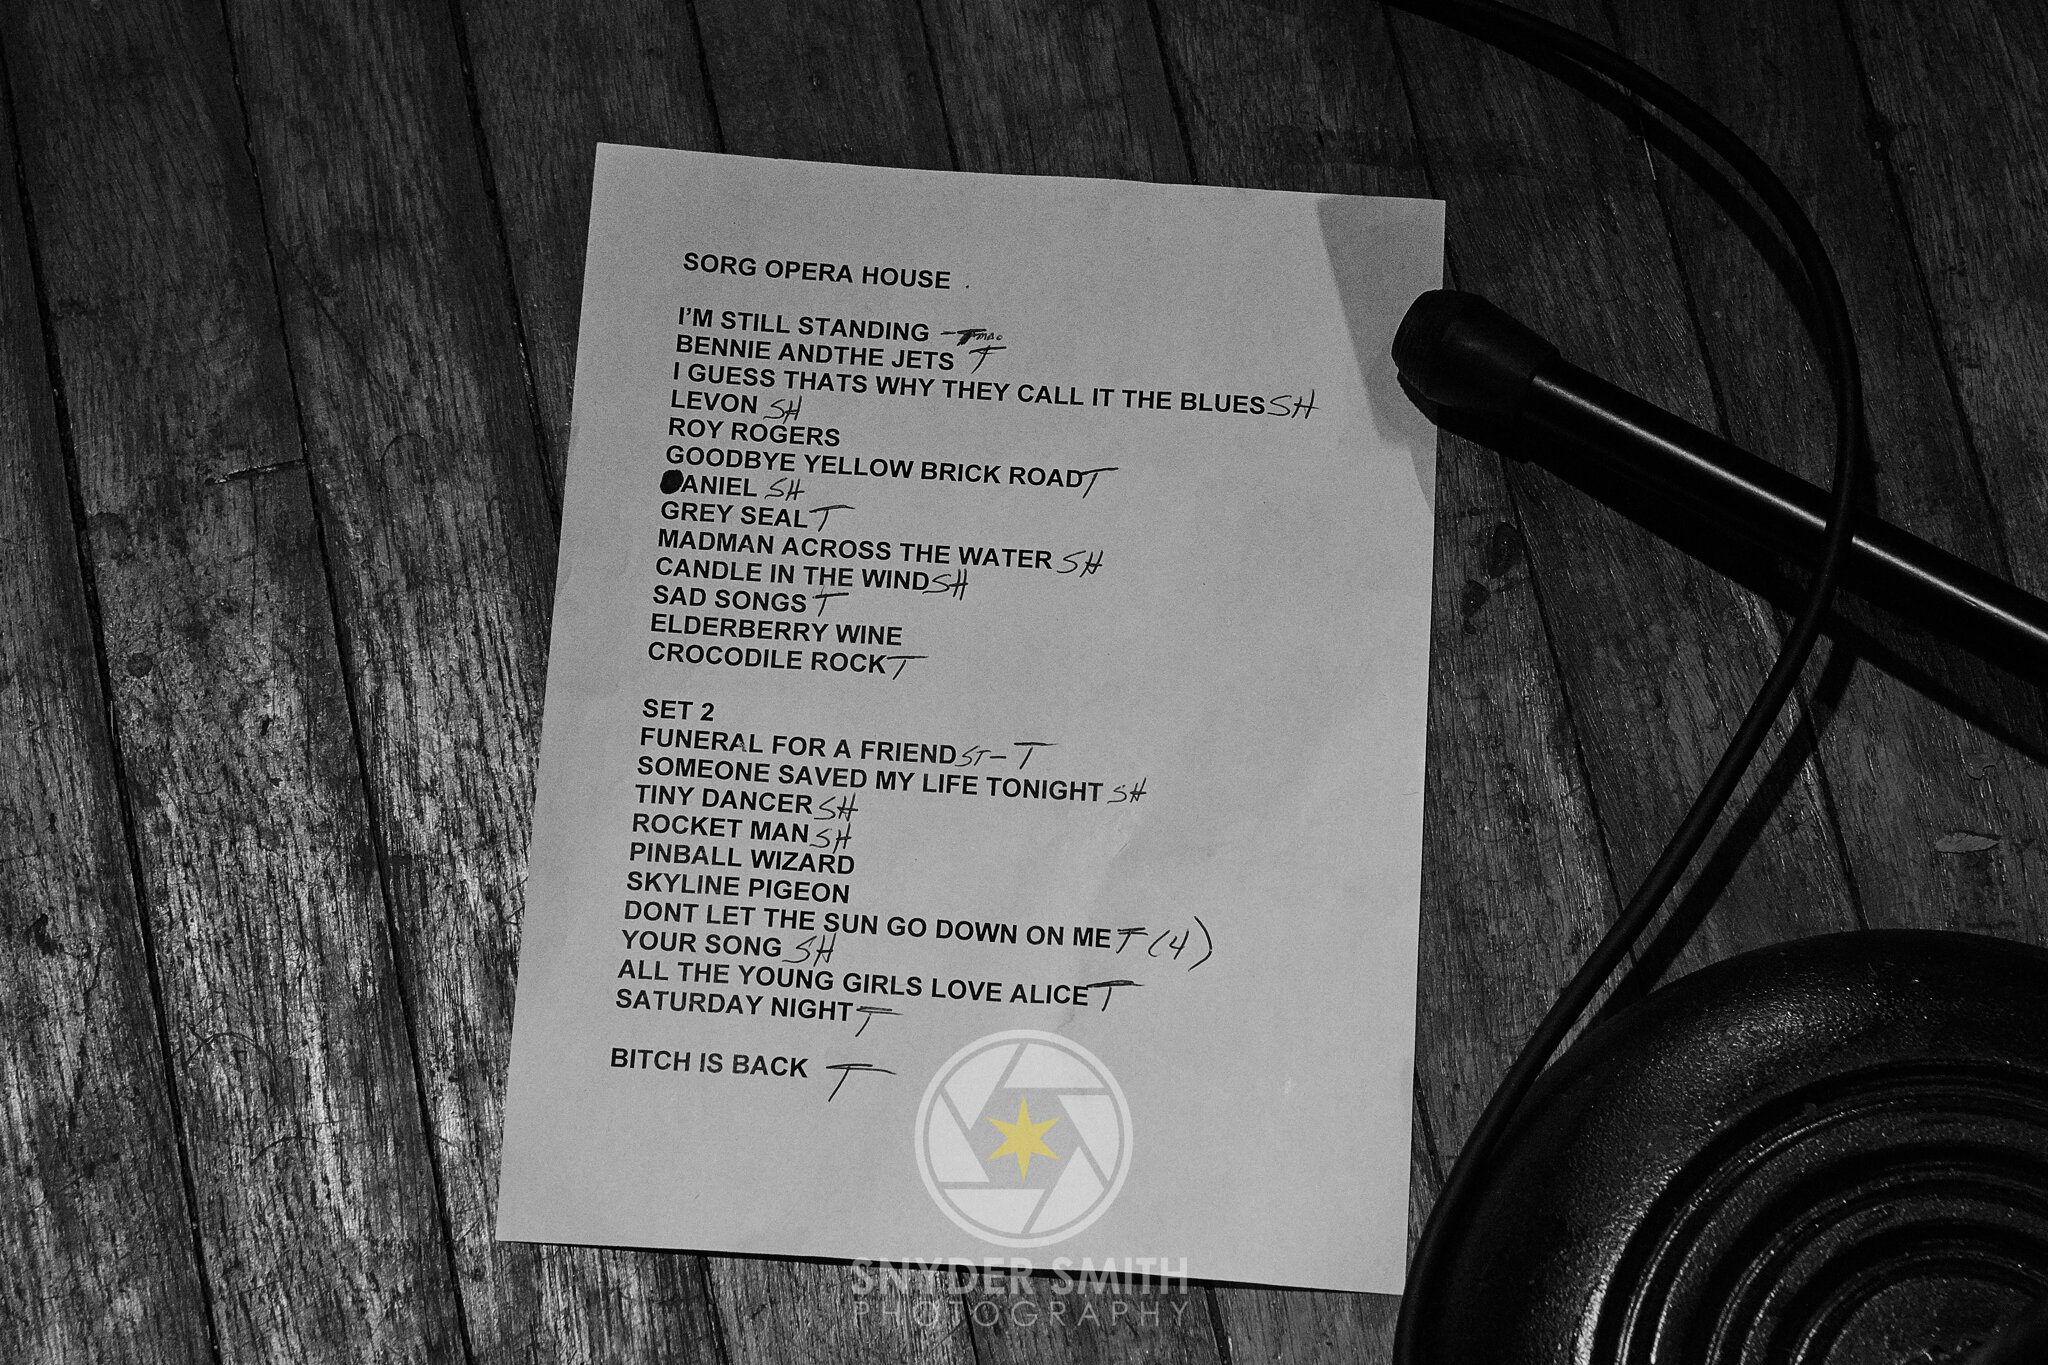 SORG OPERA HOUSE .
I'M STILL STANDING -T
BENNIE ANDTHE JETS T
I GUESS THATS WHY THEY CALL IT THE BLUES SH
LEVON SH
ROY ROGERS
GOODBYE YELLOW BRICK ROAD T
DANIEL SH
GREY SEAL T
MADMAN ACROSS THE WATER SH
CANDLE IN THE WIND SH
SAD SONGS T
ELDERBERRY WINE
CROCODILE ROCK T
SET 2
FUNERAL FOR A FRIEND ST-T
SOMEONE SAVED MY LIFE TONIGHT SH
TINY DANCER SH
ROCKET MAN SH
PINBALL WIZARD
SKYLINE PIGEON
DONT LET THE SUN GO DOWN ON ME T (4)
YOUR SONG SH
ALL THE YOUNG GIRLS LOVE ALICE T
SATURDAY NIGHT T
BITCH IS BACK T
SNYDER SMITH
PHOTOGRAPHY